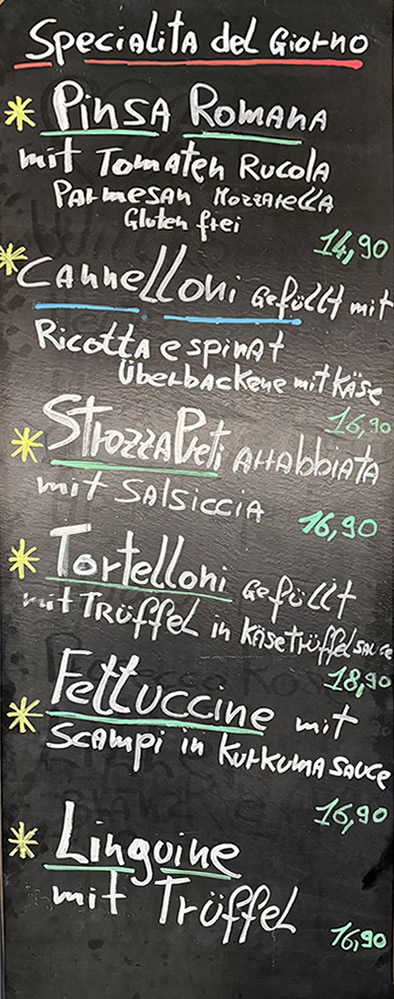 Specialita del Giorno
* Pinsa Romana
mit Tomaten Rucola
Parmesan Mozzarella
Gluten frei
14,90
* Cannelloni Gefüllt mit
Ricotta e spinat
Überbackene mit Käse
16,90
* StrozzaPreti Arrabbiata
mit Salsiccia
16,90
* Tortelloni Gefüllt
mit Trüffel in Käsetrüffelsauce
18,90
* Fettuccine mit
Scampi in Kurkuma Sauce
16,90
* Linguine
mit Trüffel
16,90